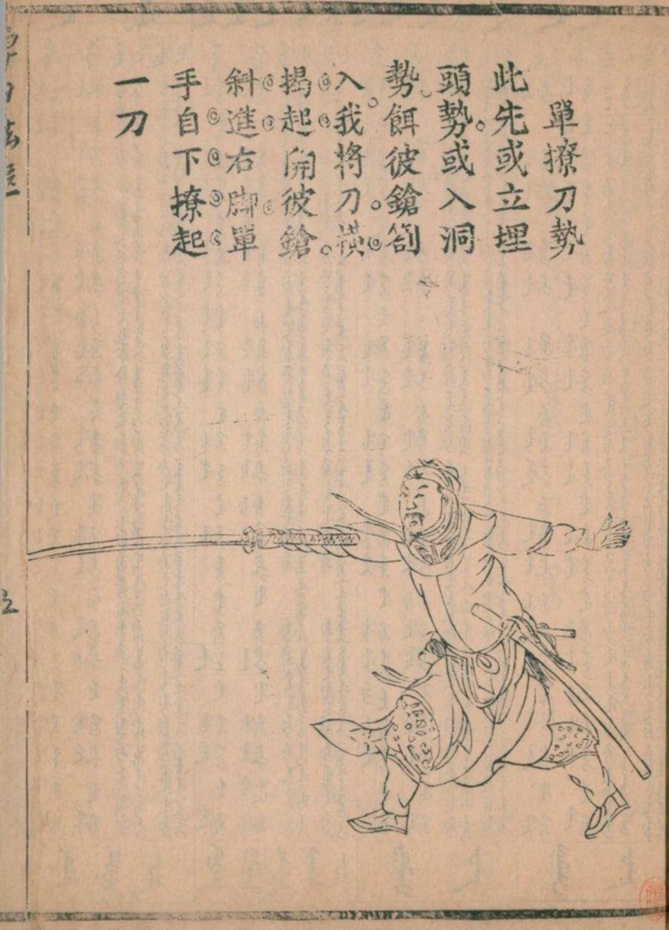 單撩刀勢
此先或立埋
頭勢或入洞
勢餌彼鎗劄
入我將刀橫
揭起開彼鎗
斜進右脚單
手自下撩起
一刀